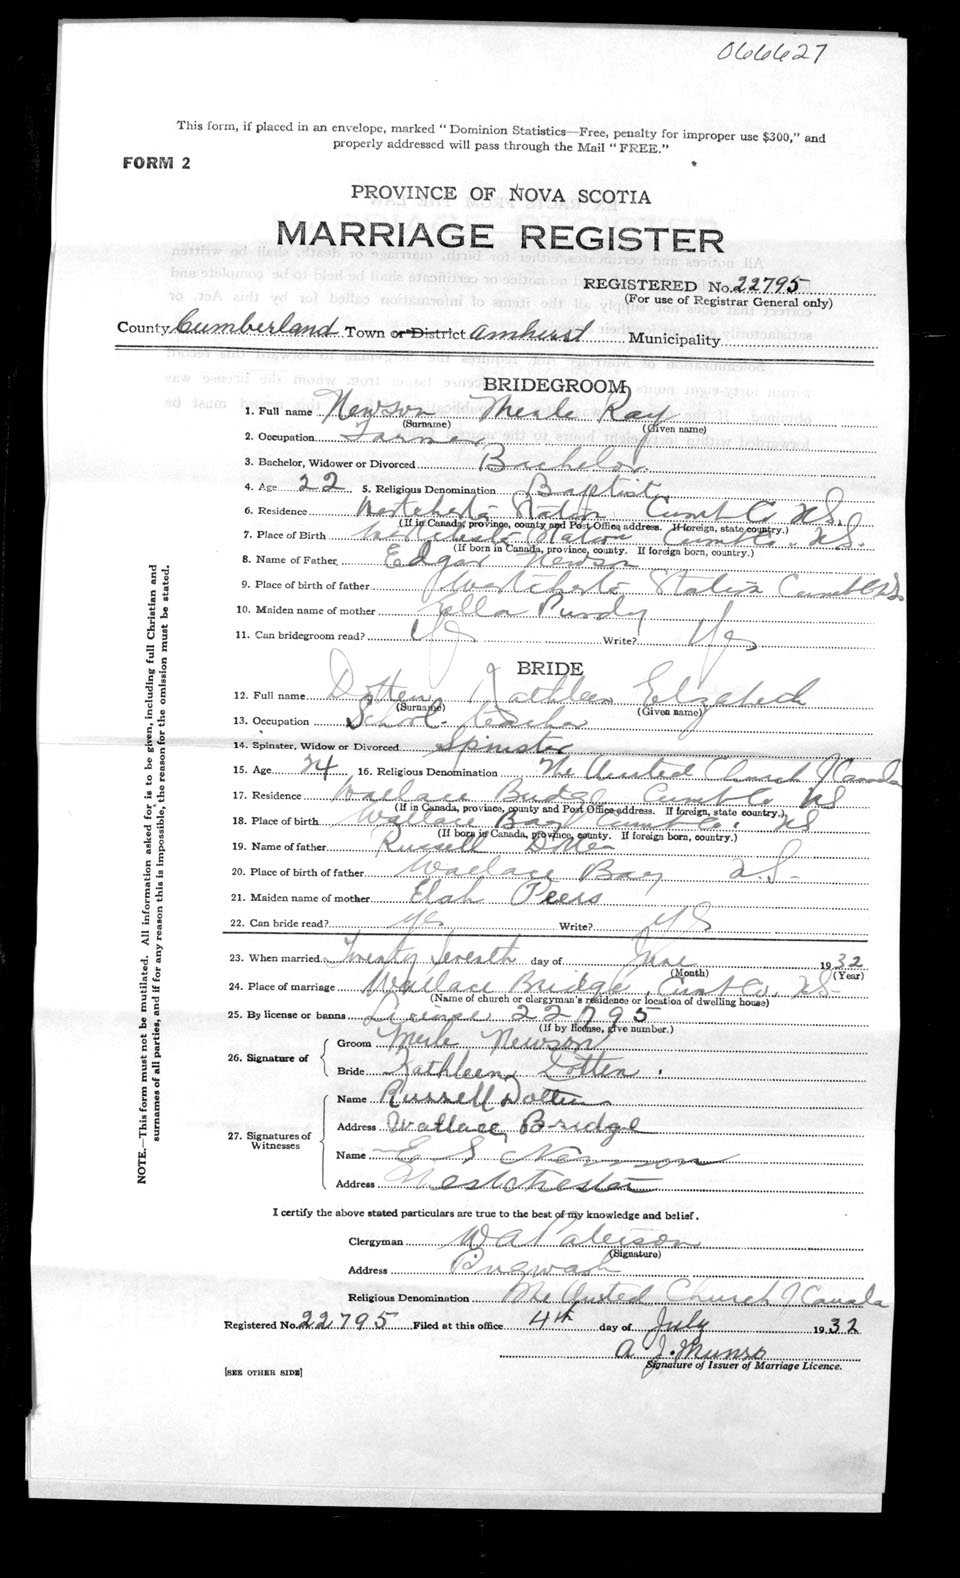 066627
This form, if placed in an envelope, marked "Dominion Statistics—Free, penalty for improper use $300," and
properly addressed will pass through the Mail "FREE."
FORM 2
PROVINCE OF NOVA SCOTIA
MARRIAGE REGISTER
REGISTERED No. 22795
(For use of Registrar General only)
County Cumberland Town or District Amherst Municipality
BRIDEGROOM
1. Full name Newson Merle Ray
(Surname) (Given name)
2. Occupation Farmer
3. Bachelor, Widower or Divorced Bachelor
4. Age 22 5. Religious Denomination Baptist
6. Residence Westchester Station Cumb Co NS.
(If in Canada, province, county and Post Office address. If foreign, state country.)
7. Place of Birth Westchester Station Cumb Co. NS.
(If born in Canada, province, county. If foreign born, country.)
8. Name of Father Edgar Newson
9. Place of birth of father Westchester Station Cumb Co NS
10. Maiden name of mother Purdy
11. Can bridegroom read? Yes Write? Yes
BRIDE
12. Full name Dotten Kathleen Elizabeth
(Surname) (Given name)
13. Occupation School teacher
14. Spinster, Widow or Divorced Spinster
15. Age 24 16. Religious Denomination The United Church of Canada
17. Residence Wallace Bridge Cumb Co NS
(If in Canada, province, county and Post Office address. If foreign, state country.)
18. Place of birth Wallace Bay Cumb Co. NS
(If born in Canada, province, county. If foreign born, country.)
19. Name of father Russell Dotten
20. Place of birth of father Wallace Bay N.S-
21. Maiden name of mother Elah Peers
22. Can bride read? Yes Write? Yes
23. When married Twenty Seventh day of June 1932
(Month) (Year)
24. Place of marriage Wallace Bridge, Cumb Co, NS-
(Name of church or clergyman's residence or location of dwelling house)
25. By license or banns License 22795
(If by license, give number.)
26. Signature of
Groom Merle Newson
Bride Kathleen Dotten.
27. Signatures of Witnesses
Name Russell Dotten
Address Wallace Bridge
Name E S Newson
Address Westchester
I certify the above stated particulars are true to the best of my knowledge and belief.
Clergyman W A Paterson
(Signature)
Address Pugwash
Religious Denomination The United Church of Canada
Registered No. 22795 Filed at this office 4th day of July 1932
A. J. Munro
Signature of Issuer of Marriage Licence.
[SEE OTHER SIDE]
NOTE.—This form must not be mutilated. All information asked for is to be given, including full Christian and
surnames of all parties, and if for any reason this is impossible, the reason for the omission must be stated.